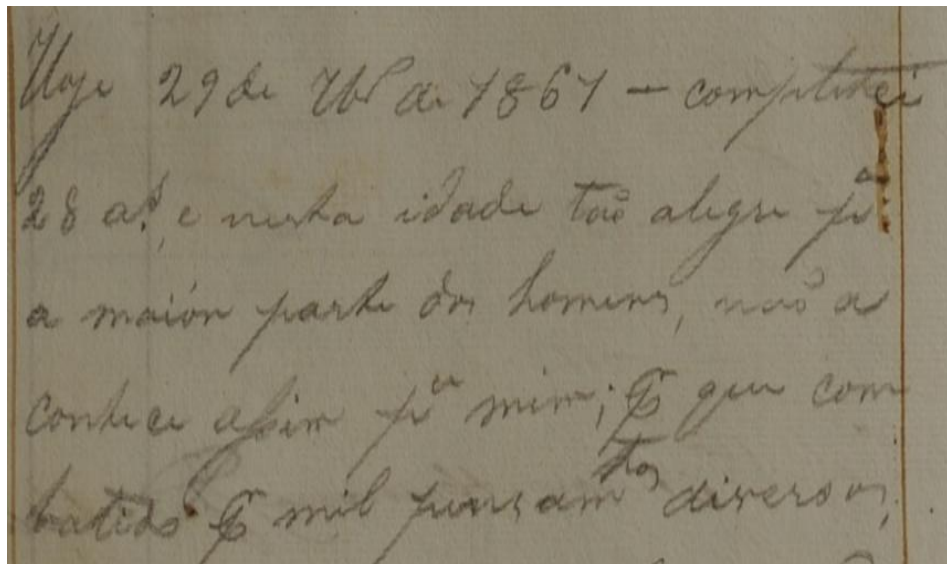 Hoje 29 de de 1861 - completei
28 aˢ, e nesta idade taõ alegre pᵃ
a maiór parte dos homens, naõ a
contece assim pᵃ mim; que com
batido mil pensamᵗᵒˢ diversos,